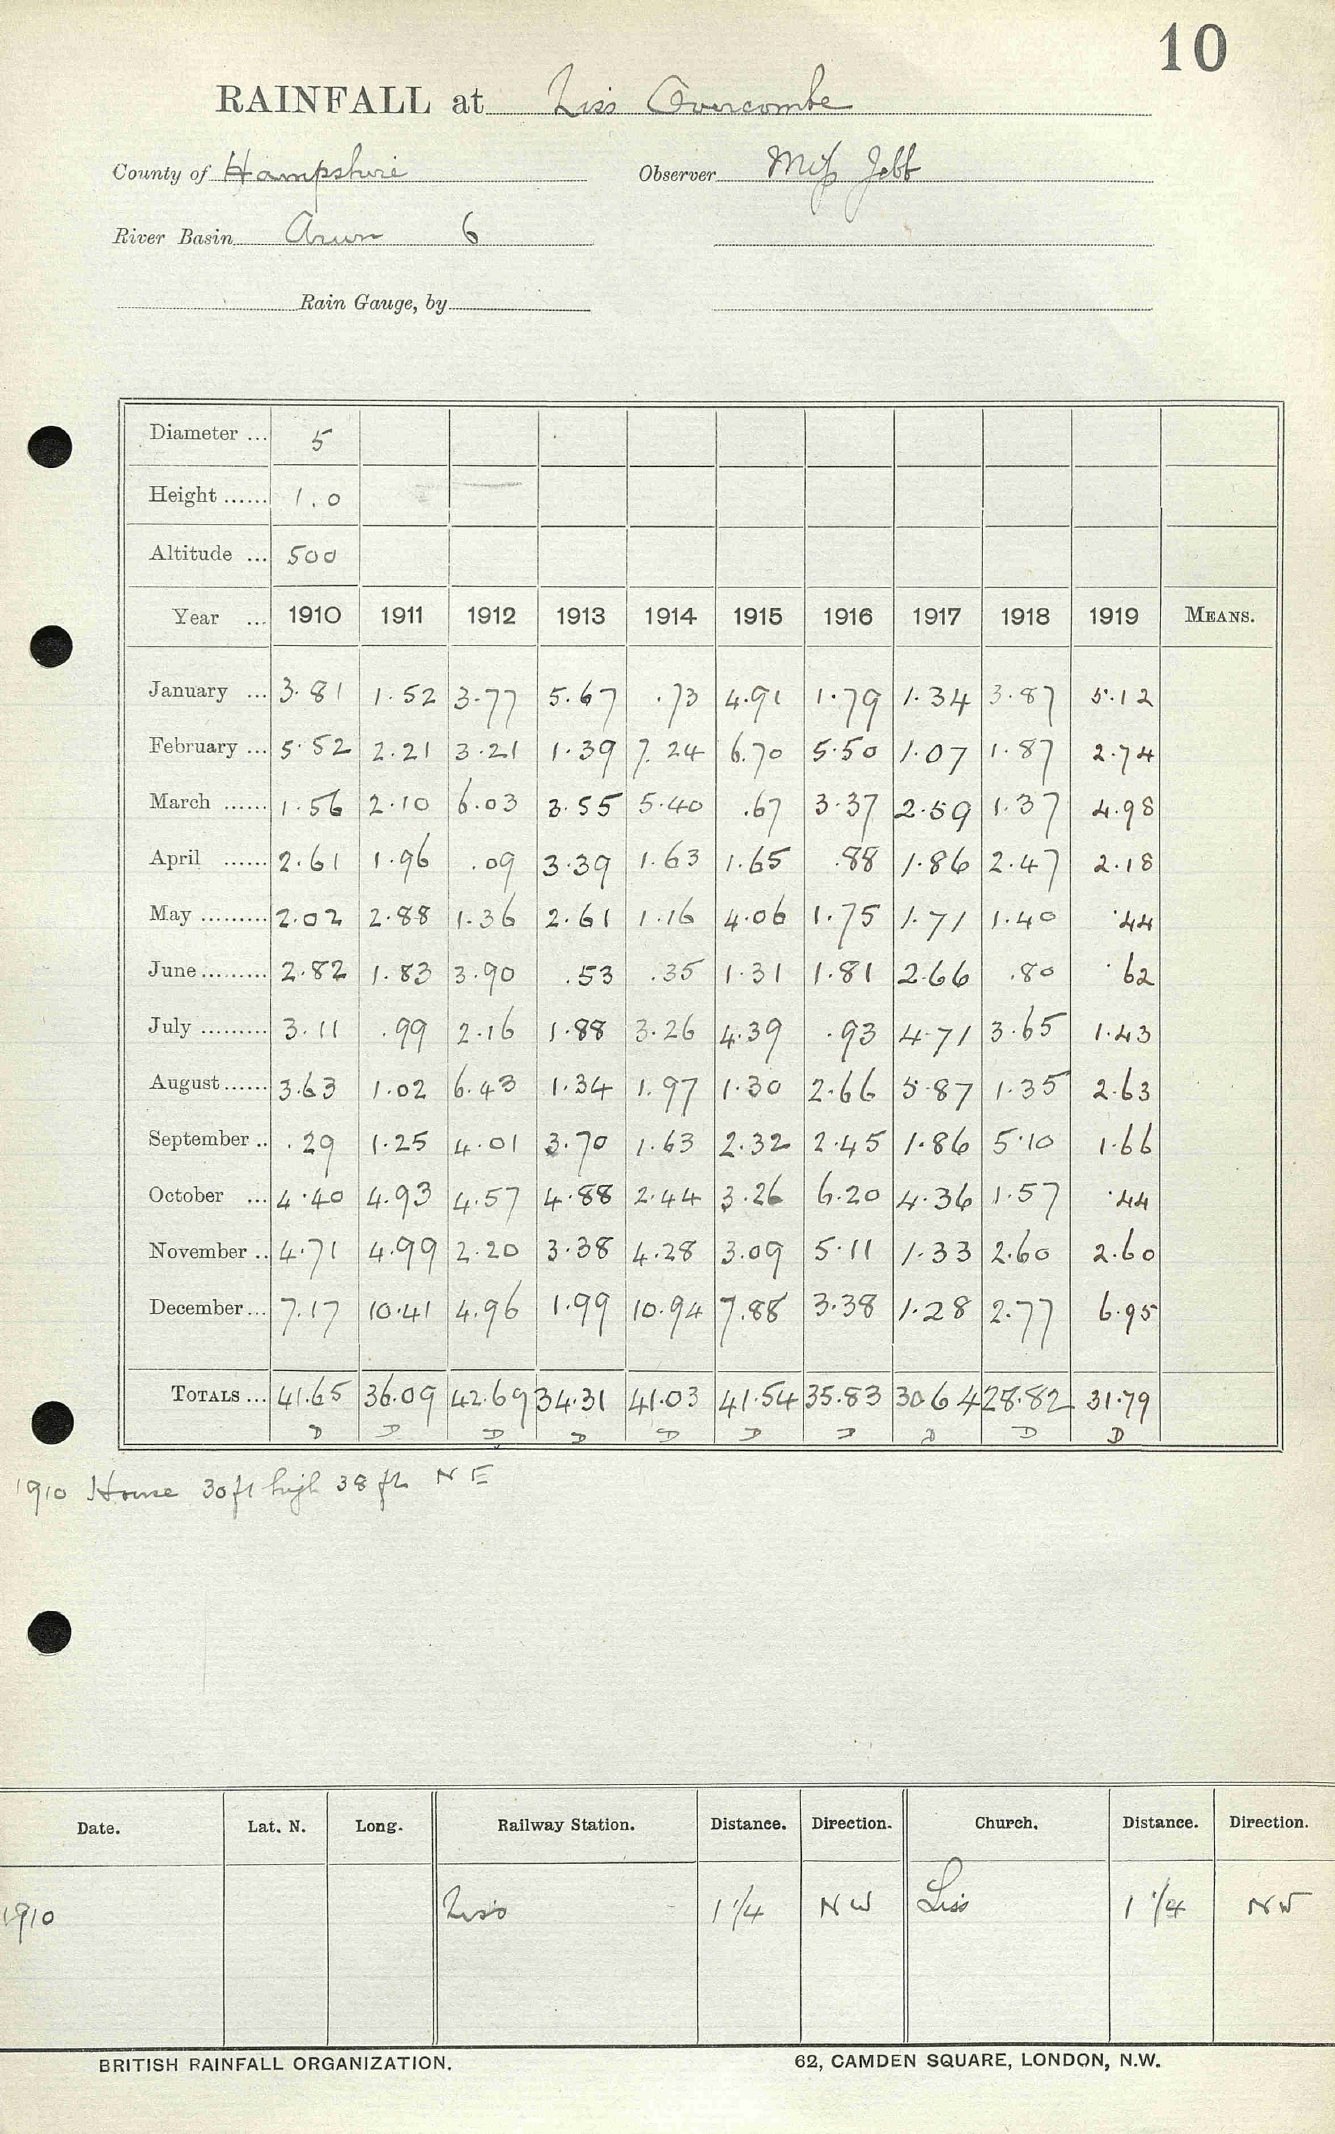 10
RAINFALL at Liss Overcombe
County of Hampshire Observer Miss Jebb
River Basin Arun 6
Rain Gauge, by
Diameter ... 5
Height ...... 1.0
Altitude ... 500
Year ... 1910 1911 1912 1913 1914 1915 1916 1917 1918 1919 MEANS.
January ... 3.81 1.52 3.77 5.67 .73 4.91 1.79 1.34 3.87 5.12
February ... 5.52 2.21 3.21 1.39 7.24 6.70 5.50 1.07 1.87 2.74
March ...... 1.56 2.10 6.03 3.55 5.40 .67 3.37 2.59 1.37 4.98
April ...... 2.61 1.96 .09 3.39 1.63 1.65 .88 1.86 2.47 2.18
May ......... 2.02 2.88 1.36 2.61 1.16 4.06 1.75 1.71 1.40 .44
June ......... 2.82 1.83 3.90 .53 .35 1.31 1.81 2.66 .80 .62
July ......... 3.11 .99 2.16 1.88 3.26 4.39 .93 4.71 3.65 1.43
August ...... 3.63 1.02 6.43 1.34 1.97 1.30 2.66 5.87 1.35 2.63
September .. .29 1.25 4.01 3.70 1.63 2.32 2.45 1.86 5.10 1.66
October ... 4.40 4.93 4.57 4.88 2.44 3.26 6.20 4.36 1.57 .44
November .. 4.71 4.99 2.20 3.38 4.28 3.09 5.11 1.33 2.60 2.60
December ... 7.17 10.41 4.96 1.99 10.94 7.88 3.38 1.28 2.77 6.95
TOTALS ... 41.65 36.09 42.69 34.31 41.03 41.54 35.83 30.64 28.82 31.79
D D D D D D D D D D
1910 House 30 ft high 38 ft NE
Date. Lat. N. Long. Railway Station. Distance. Direction. Church. Distance. Direction.
1910 Liss 1 1/4 NW Liss 1 1/4 NW
BRITISH RAINFALL ORGANIZATION. 62, CAMDEN SQUARE, LONDON, N.W.